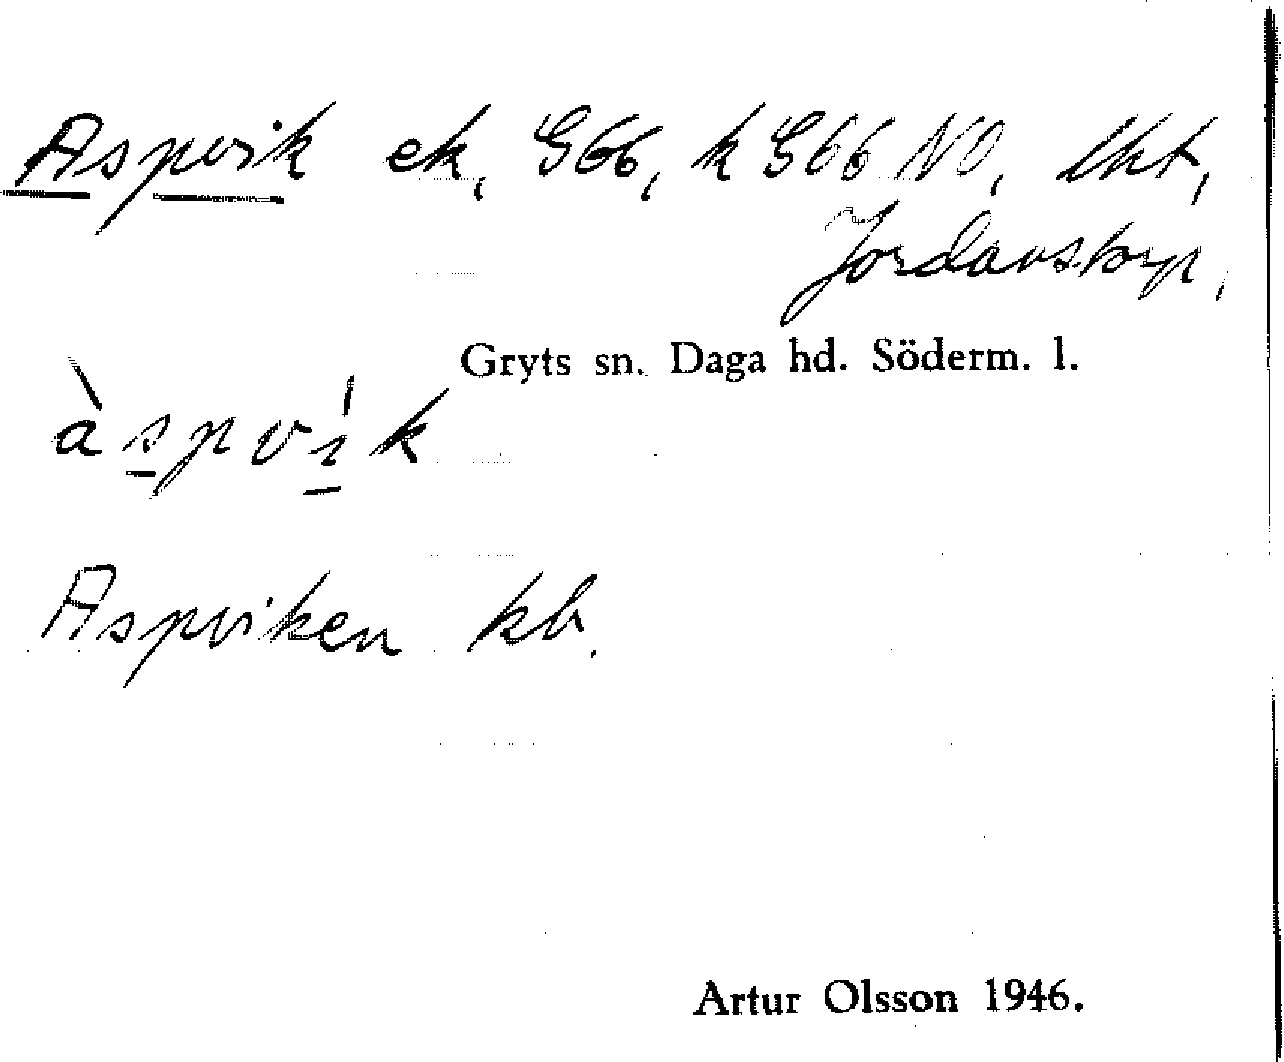 Aspvik ek, G66, k G66 NO, lht,
Jordanstorp,
Gryts sn. Daga hd. Söderm. l.
àspvík
Aspviken kb.
Artur Olsson 1946.